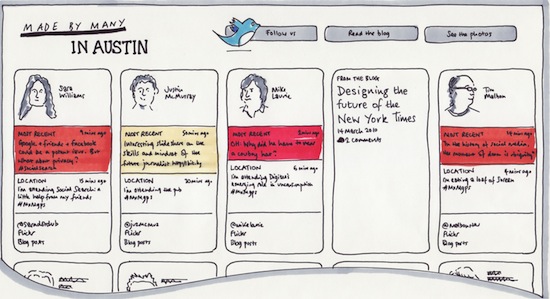 MADE BY MANY
IN AUSTIN
Follow us
Read the blog
See the photos
Sara
Williams
MOST RECENT 9 mins ago
Google + friends + Facebook
could be a potent view. But
what about privacy?
#socialsearch
LOCATION 15 mins ago
I'm attending Social Search: a
little help from my friends
#MxMapps
Flickr
Blog posts
Justin
McMurray
MOST RECENT 50 mins ago
Interesting slideshare on the
skills and mindset of the
future journalist
LOCATION 20 mins ago
I'm attending the pub
#MxMapps
@juzmcmuz
Flickr
Blog posts
Mike
Laurie
MOST RECENT 2 mins ago
Oh why did he have to wear
a cowboy hat?
LOCATION 6 mins ago
I'm attending Digital
#MxMapps
@mikelaurie
Flickr
Blog posts
FROM THE BLOG
Designing the
future of the
New York Times
14 March 2010
2 comments
Tim
Malbon
MOST RECENT 14 mins ago
In the history of social media,
the moment of dawn is
LOCATION 4 mins ago
I'm eating a loaf of
#MxMapps
@malbonnington
Flickr
Blog posts